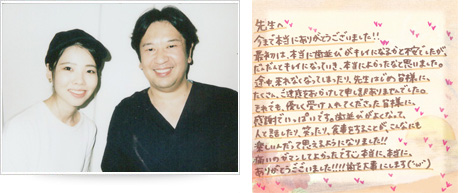 先生へ
今まで本当にありがとうございました!!
最初は、本当に歯並びがキレイになるか不安でしたが、
だんだんキレイになっていき、本当によかったなと思いました。
途中、来れなくなってしまったり、先生はじめ皆様に、
たくさん、ご迷惑をおかけして申し訳ありませんでした。
それでも、優しく受け入れてくださった皆様に、
感謝でいっぱいです。歯並びがよくなって、
人と話したり、笑ったり、食事をすることが、こんなにも
楽しいんだって思えるようになりました!!
痛いのガマンしてよかったです 本当に、本当に、
ありがとうございました!!!!歯を大事にします(^ω^)